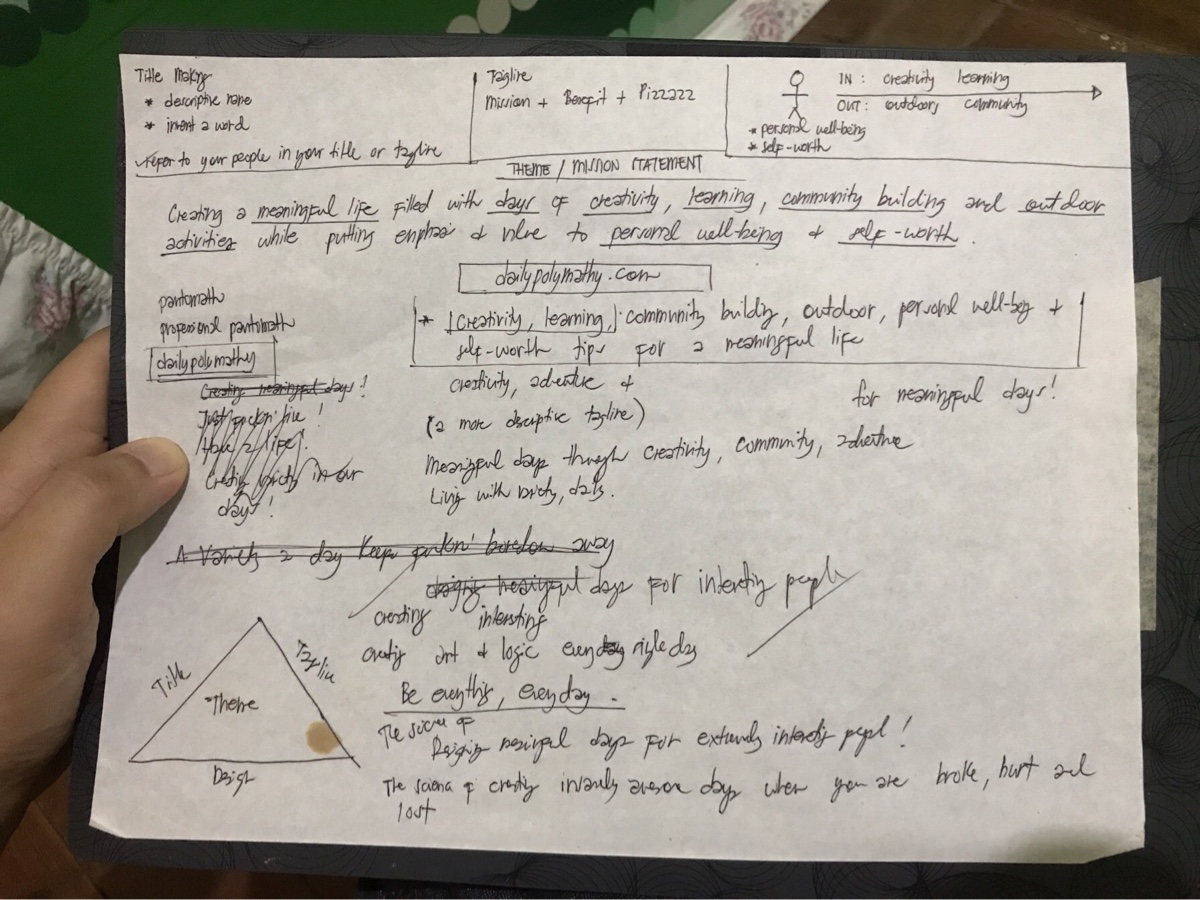 Title Making
* descriptive name
* invent a word
refer to your people in your title or tagline
Tagline
Mission + Benefit + Pizzazz
IN: creativity learning
OUT: outdoors community
* personal well-being
* self-worth
THEME / MISSION STATEMENT
Creating a meaningful life filled with days of creativity, learning, community building and outdoor
activities while putting emphasis & value to personal well-being & self-worth.
dailypolymathy.com
pantomath
professional pantomath
dailypolymathy
Creating meaningful days!
Have a life!
days!
* creativity, learning, community building, outdoor, personal well-being +
self-worth tips for a meaningful life
creativity, adventure &
for meaningful days!
(a more descriptive tagline)
Meaningful days through creativity, community, adventure
Living with variety, daily.
A Variety a day keeps fuckin' boredom away
designing meaningful days for interesting people
creating interesting
creating art & logic every day
Be everything, everyday.
The science of
Designing meaningful days for extremely interesting people!
The science of creating insanely awesome days when you are broke, hurt and
lost
Title
Tagline
Theme
Design